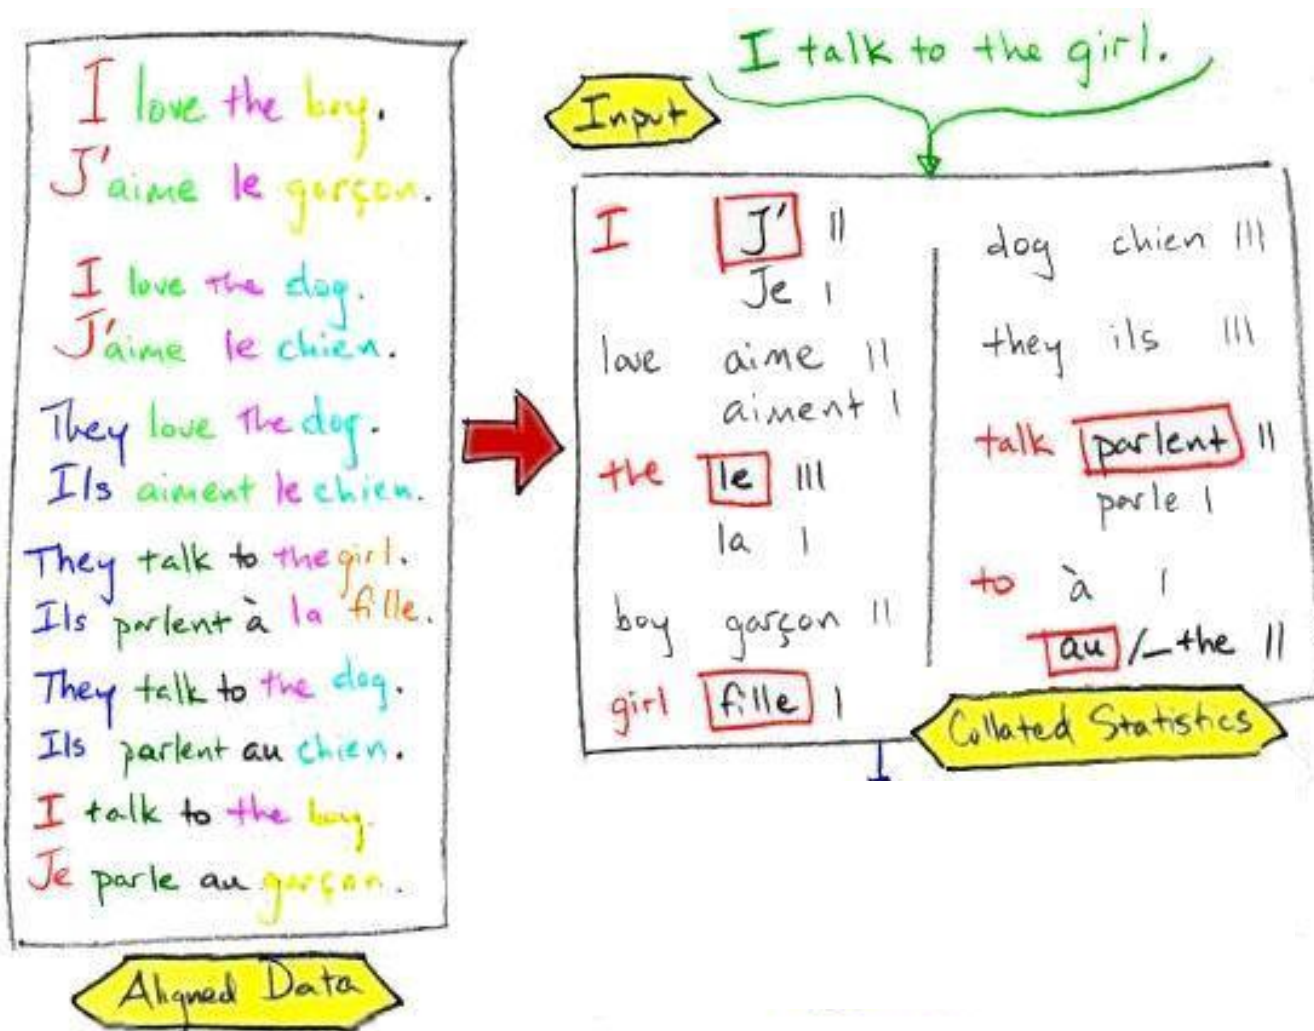 I love the boy.
J'aime le garçon.
I love the dog.
J'aime le chien.
They love the dog.
Ils aiment le chien.
They talk to the girl.
Ils parlent à la fille.
They talk to the dog.
Ils parlent au chien.
I talk to the boy.
Je parle au garçon.
Aligned Data
I talk to the girl.
Input
I J' ||
Je |
love aime ||
aiment |
the le |||
la |
boy garçon ||
girl fille |
dog chien |||
they ils |||
talk parlent ||
parle |
to à |
au /_the ||
Collated Statistics